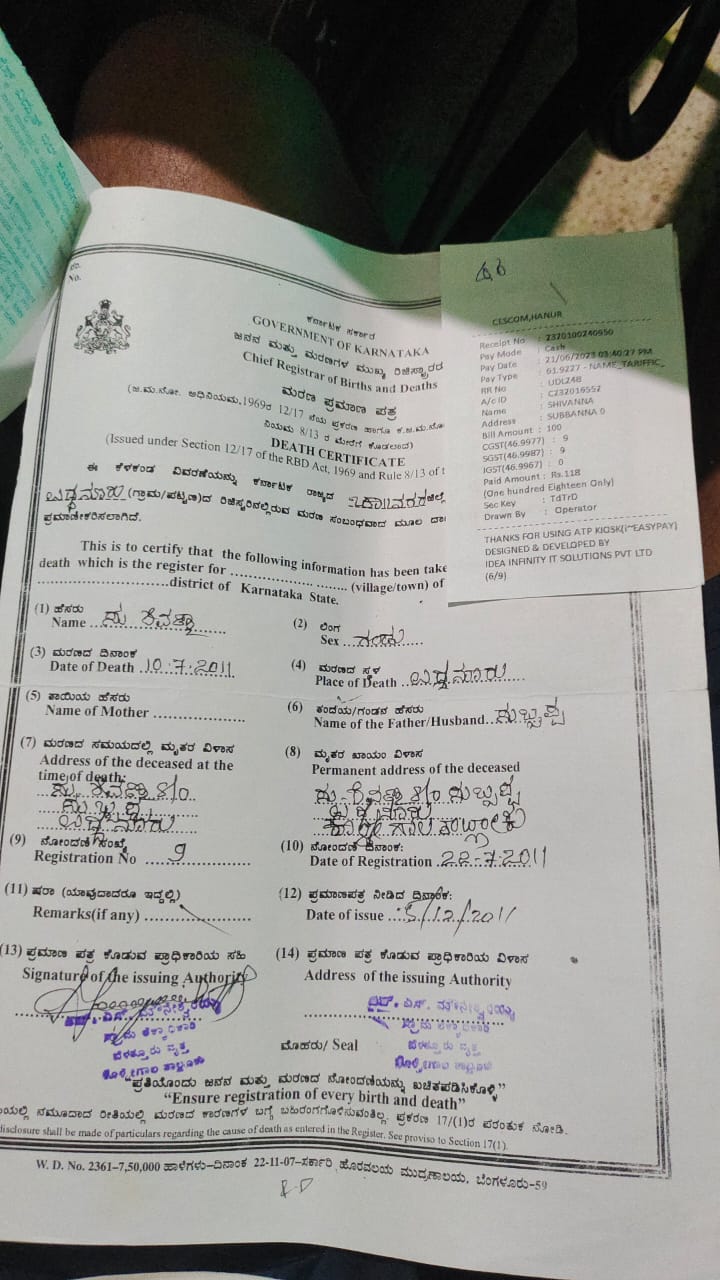 ನಂ.
No.
ಕರ್ನಾಟಕ ಸರ್ಕಾರ
GOVERNMENT OF KARNATAKA
ಜನನ ಮತ್ತು ಮರಣಗಳ ಮುಖ್ಯ ರಿಜಿಸ್ಟ್ರಾರರ
Chief Registrar of Births and Deaths
ಮರಣ ಪ್ರಮಾಣ ಪತ್ರ
(ಜ.ಮ.ನೋ. ಅಧಿನಿಯಮ,1969ರ 12/17 ನೆಯ ಪ್ರಕರಣ ಹಾಗೂ ಕ.ಜ.ಮ.ನೋ
ನಿಯಮ 8/13 ರ ಮೇರೆಗೆ ಕೊಡಲಾದ)
DEATH CERTIFICATE
(Issued under Section 12/17 of the RBD Act, 1969 and Rule 8/13 of t
ಈ ಕೆಳಕಂಡ ವಿವರಣೆಯನ್ನು ಕರ್ನಾಟಕ ರಾಜ್ಯದ ಜಿಲ್ಲೆ
(ಗ್ರಾಮ/ಪಟ್ಟಣ)ದ ರಿಜಿಸ್ಟರಿನಲ್ಲಿರುವ ಮರಣ ಸಂಬಂಧವಾದ ಮೂಲ ದಾ
ಪ್ರಮಾಣೀಕರಿಸಲಾಗಿದೆ.
This is to certify that the following information has been take
death which is the register for .................. ........ (village/town) of
..............................district of Karnataka State.
(1) ಹೆಸರು
Name
(2) ಲಿಂಗ
Sex ಗಂಡು
(3) ಮರಣದ ದಿನಾಂಕ
Date of Death 10.7.2011
(4) ಮರಣದ ಸ್ಥಳ
Place of Death
(5) ತಾಯಿಯ ಹೆಸರು
Name of Mother
(6) ತಂದೆಯ/ಗಂಡನ ಹೆಸರು
Name of the Father/Husband ಸುಬ್ಬಪ್ಪ
(7) ಮರಣದ ಸಮಯದಲ್ಲಿ ಮೃತರ ವಿಳಾಸ
Address of the deceased at the
time of death:
S/o
ಸುಬ್ಬಪ್ಪ
(8) ಮೃತರ ಖಾಯಂ ವಿಳಾಸ
Permanent address of the deceased
S/o ಸುಬ್ಬಪ್ಪ
(9) ನೋಂದಣಿ ಸಂಖ್ಯೆ
Registration No 9
(10) ನೋಂದಣಿ ದಿನಾಂಕ:
Date of Registration 22-7-2011
(11) ಷರಾ (ಯಾವುದಾದರೂ ಇದ್ದಲ್ಲಿ)
Remarks(if any)
(12) ಪ್ರಮಾಣಪತ್ರ ನೀಡಿದ ದಿನಾಂಕ:
Date of issue 5/12/2011
(13) ಪ್ರಮಾಣ ಪತ್ರ ಕೊಡುವ ಪ್ರಾಧಿಕಾರಿಯ ಸಹಿ
Signature of the issuing Authority
(14) ಪ್ರಮಾಣ ಪತ್ರ ಕೊಡುವ ಪ್ರಾಧಿಕಾರಿಯ ವಿಳಾಸ
Address of the issuing Authority
ಮೊಹರು/ Seal
"ಪ್ರತಿಯೊಂದು ಜನನ ಮತ್ತು ಮರಣದ ನೋಂದಣಿಯನ್ನು ಖಚಿತಪಡಿಸಿಕೊಳ್ಳಿ"
"Ensure registration of every birth and death"
ಯಲ್ಲಿ ನಮೂದಾದ ರೀತಿಯಲ್ಲಿ ಮರಣದ ಕಾರಣಗಳ ಬಗ್ಗೆ ಬಹಿರಂಗಗೊಳಿಸುವಂತಿಲ್ಲ. ಪ್ರಕರಣ 17/(1)ರ ಪರಂತುಕ ನೋಡಿ.
disclosure shall be made of particulars regarding the cause of death as entered in the Register. See proviso to Section 17(1).
W. D. No. 2361–7,50,000 ಹಾಳೆಗಳು–ದಿನಾಂಕ 22-11-07–ಸರ್ಕಾರಿ ಹೊರವಲಯ ಮುದ್ರಣಾಲಯ, ಬೆಂಗಳೂರು-59
CESCOM,HANUR
Receipt No : 2320100240950
Pay Mode : Cash
Pay Date : 21/06/2023 03:40:27 PM
Pay Type : 61.9227 - NAME_TARIFFIC_
RR No : UDL248
A/c ID : C232016552
Name : SHIVANNA
Address : SUBBANNA 0
Bill Amount : 100
CGST(46.9977) : 9
SGST(46.9987) : 9
IGST(46.9967) : 0
Paid Amount : Rs.118
(One hundred Eighteen Only)
Sec Key : TdTrD
Drawn By : Operator
THANKS FOR USING ATP KIOSK(i~EASYPAY)
DESIGNED & DEVELOPED BY
IDEA INFINITY IT SOLUTIONS PVT LTD
(6/9)